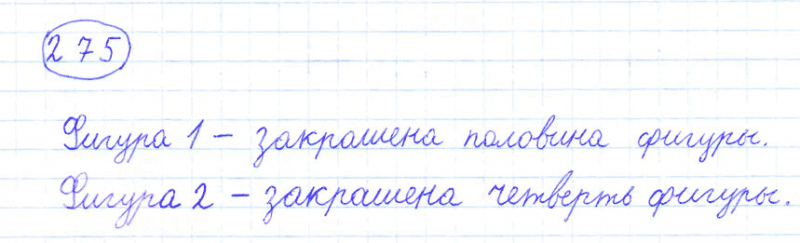 275
Фигура 1 – закрашена половина фигуры.
Фигура 2 – закрашена четверть фигуры.